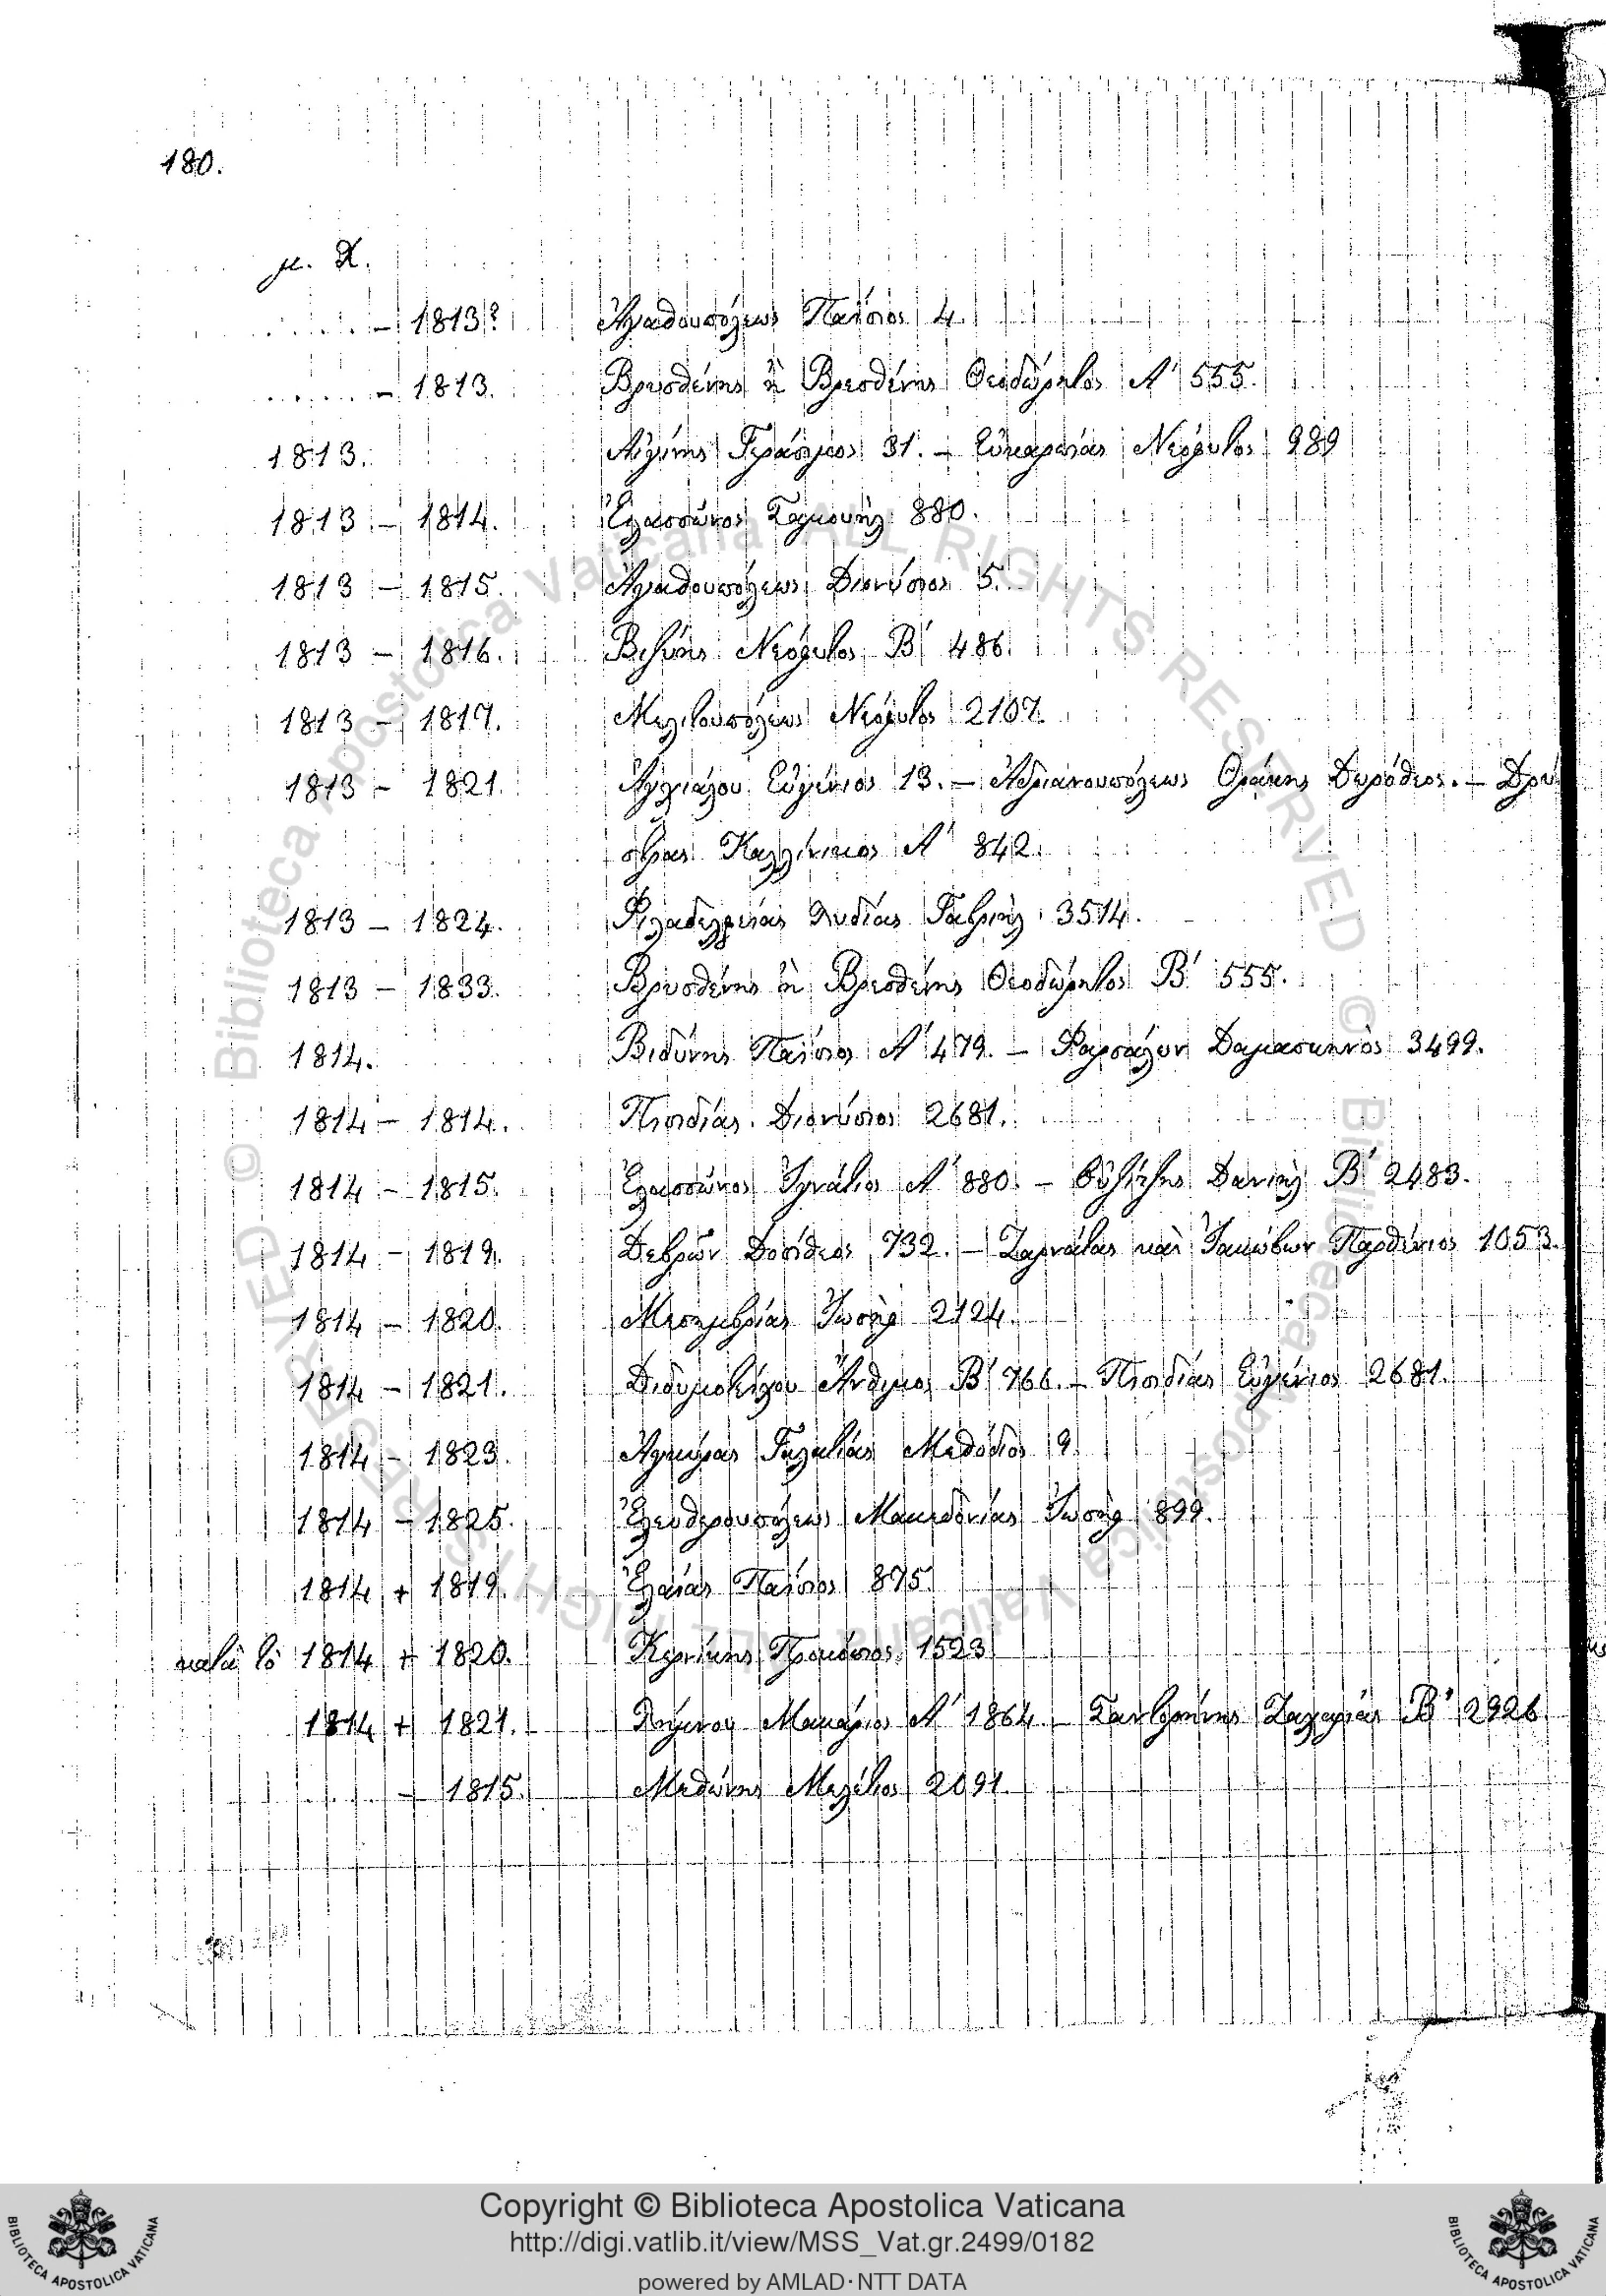 180.
μ. Χ.
..... - 1813? Ἀγαθουπόλεως Παΐσιος 4.
..... - 1813. Βρυσθένης ἢ Βρεσθένης Θεοδώρητος Α' 555.
1813. Αἰγίνης Γεράσιμος 31. - Εὐκαρπίας Νεόφυτος 989
1813 - 1814. Ἐλασσῶνος Σαμουὴλ 880.
1813 - 1815. Ἀγαθουπόλεως Διονύσιος 5.
1813 - 1816. Βιζύης Νεόφυτος Β' 486.
1813 - 1817. Μελιτουπόλεως Νεόφυτος 2107.
1813 - 1821. Ἀγχιάλου Εὐγένιος 13. - Ἀδριανουπόλεως Θράκης Δωρόθεος. - Δρύ
στρας Καλλίνικος Α' 842.
1813 - 1824. Φιλαδελφείας Λυδίας Γαβριὴλ 3514.
1813 - 1833. Βρυσθένης ἢ Βρεσθένης Θεοδώρητος Β' 555.
1814. Βιδύνης Παΐσιος Α' 479. - Φαρσάλων Δαμασκηνὸς 3499.
1814 - 1814. Πισιδίας Διονύσιος 2681.
1814 - 1815. Ἐλασσῶνος Ἰγνάτιος Α' 880. - Δανιὴλ Β' 2483.
1814 - 1819. Δεβρῶν Δοσίθεος 732. - Ζαρνάτας καὶ Παρθένιος 1053.
1814 - 1820. Μεσημβρίας Ἰωσὴφ 2124.
1814 - 1821. Διδυμοτείχου Ἄνθιμος Β' 766. - Πισιδίας Εὐγένιος 2681.
1814 - 1823. Ἀγκύρας Γαλατίας Μεθόδιος 9.
1814 - 1825. Ἐλευθερουπόλεως Μακεδονίας Ἰωσὴφ 899.
1814 + 1819. Ἐλαίας Παΐσιος 875
κατὰ τὸ 1814 + 1820. Κερνίκης Προκόπιος 1523
1814 + 1821. Λήμνου Μακάριος Α' 1864. - Σαντορήνης Ζαχαρίας Β' 2926.
..... - 1815. Μεθώνης Μελέτιος 2091.
Copyright © Biblioteca Apostolica Vaticana
http://digi.vatlib.it/view/MSS_Vat.gr.2499/0182
powered by AMLAD·NTT DATA